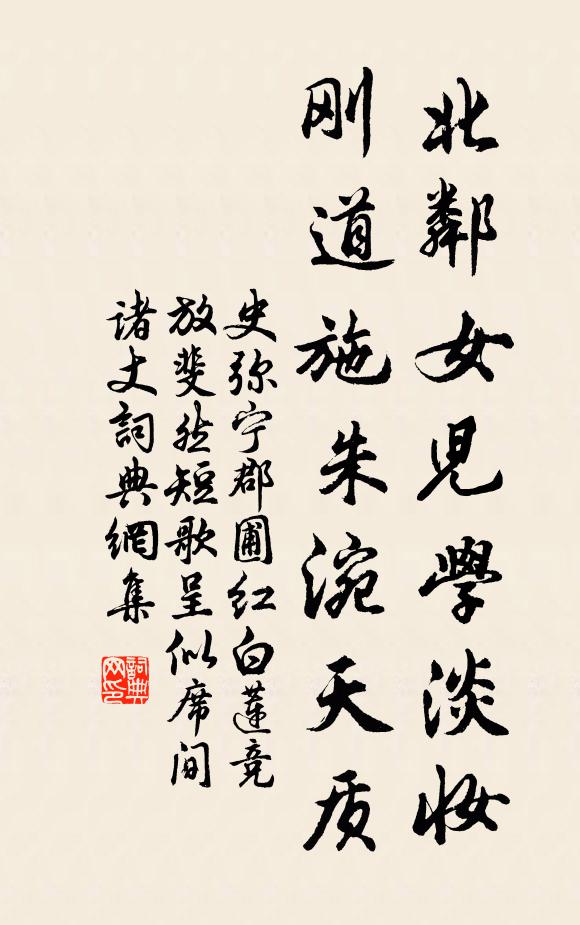 北鄰女児學淡妝
刚道施朱涴天质
史弥宁郡圃红白蓮竞
放斐然短歌呈似席间
诸丈詞典網集
詞典网印